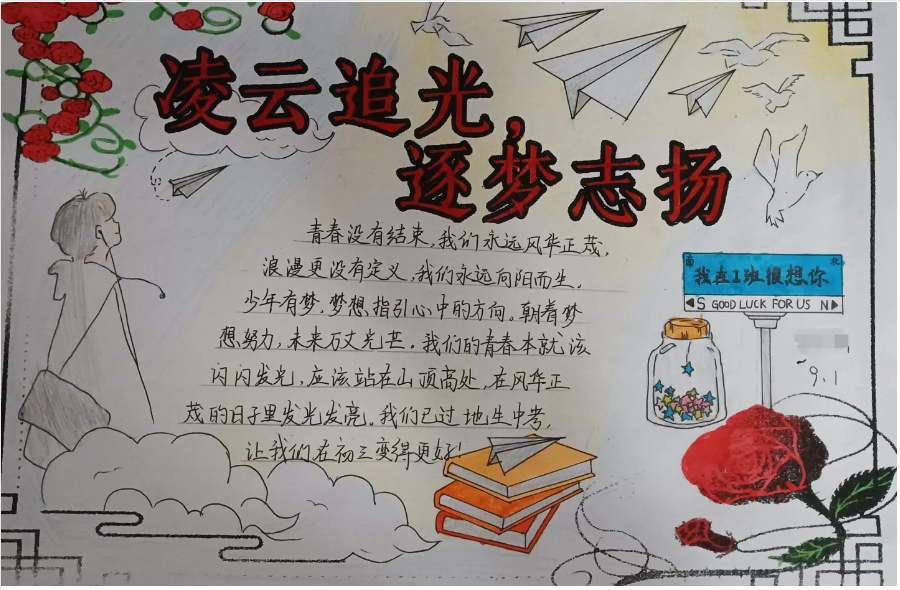 凌云追光，
逐梦志扬
青春没有结束，我们永远风华正茂，
浪漫更没有定义，我们永远向阳而生，
少年有梦，梦想指引心中的方向。朝着梦
想努力，未来万丈光芒。我们的青春本就该
闪闪发光，应该站在山顶高处，在风华正
茂的日子里发光发亮。我们已过地生中考，
让我们在初三变得更好！
南 北
我在1班很想你
S GOOD LUCK FOR US N
9.1